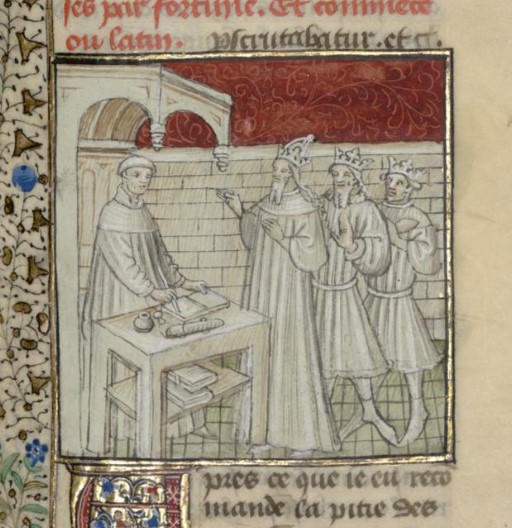 ses par fortune. Et commēce
ou latin. pscrutabatur. et c̄.
pres ce que ie eu reco
mande la pitie des